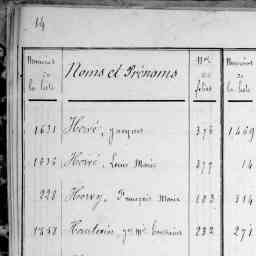 14
Numéros de la liste Noms et Prénoms Nos des folios Numéros de la liste
1631 Hervé, Jacques 376 1469
1636 Hervé, Louis Marie 377 14
228 Hervy, François Marie 182 314
1858 232 271